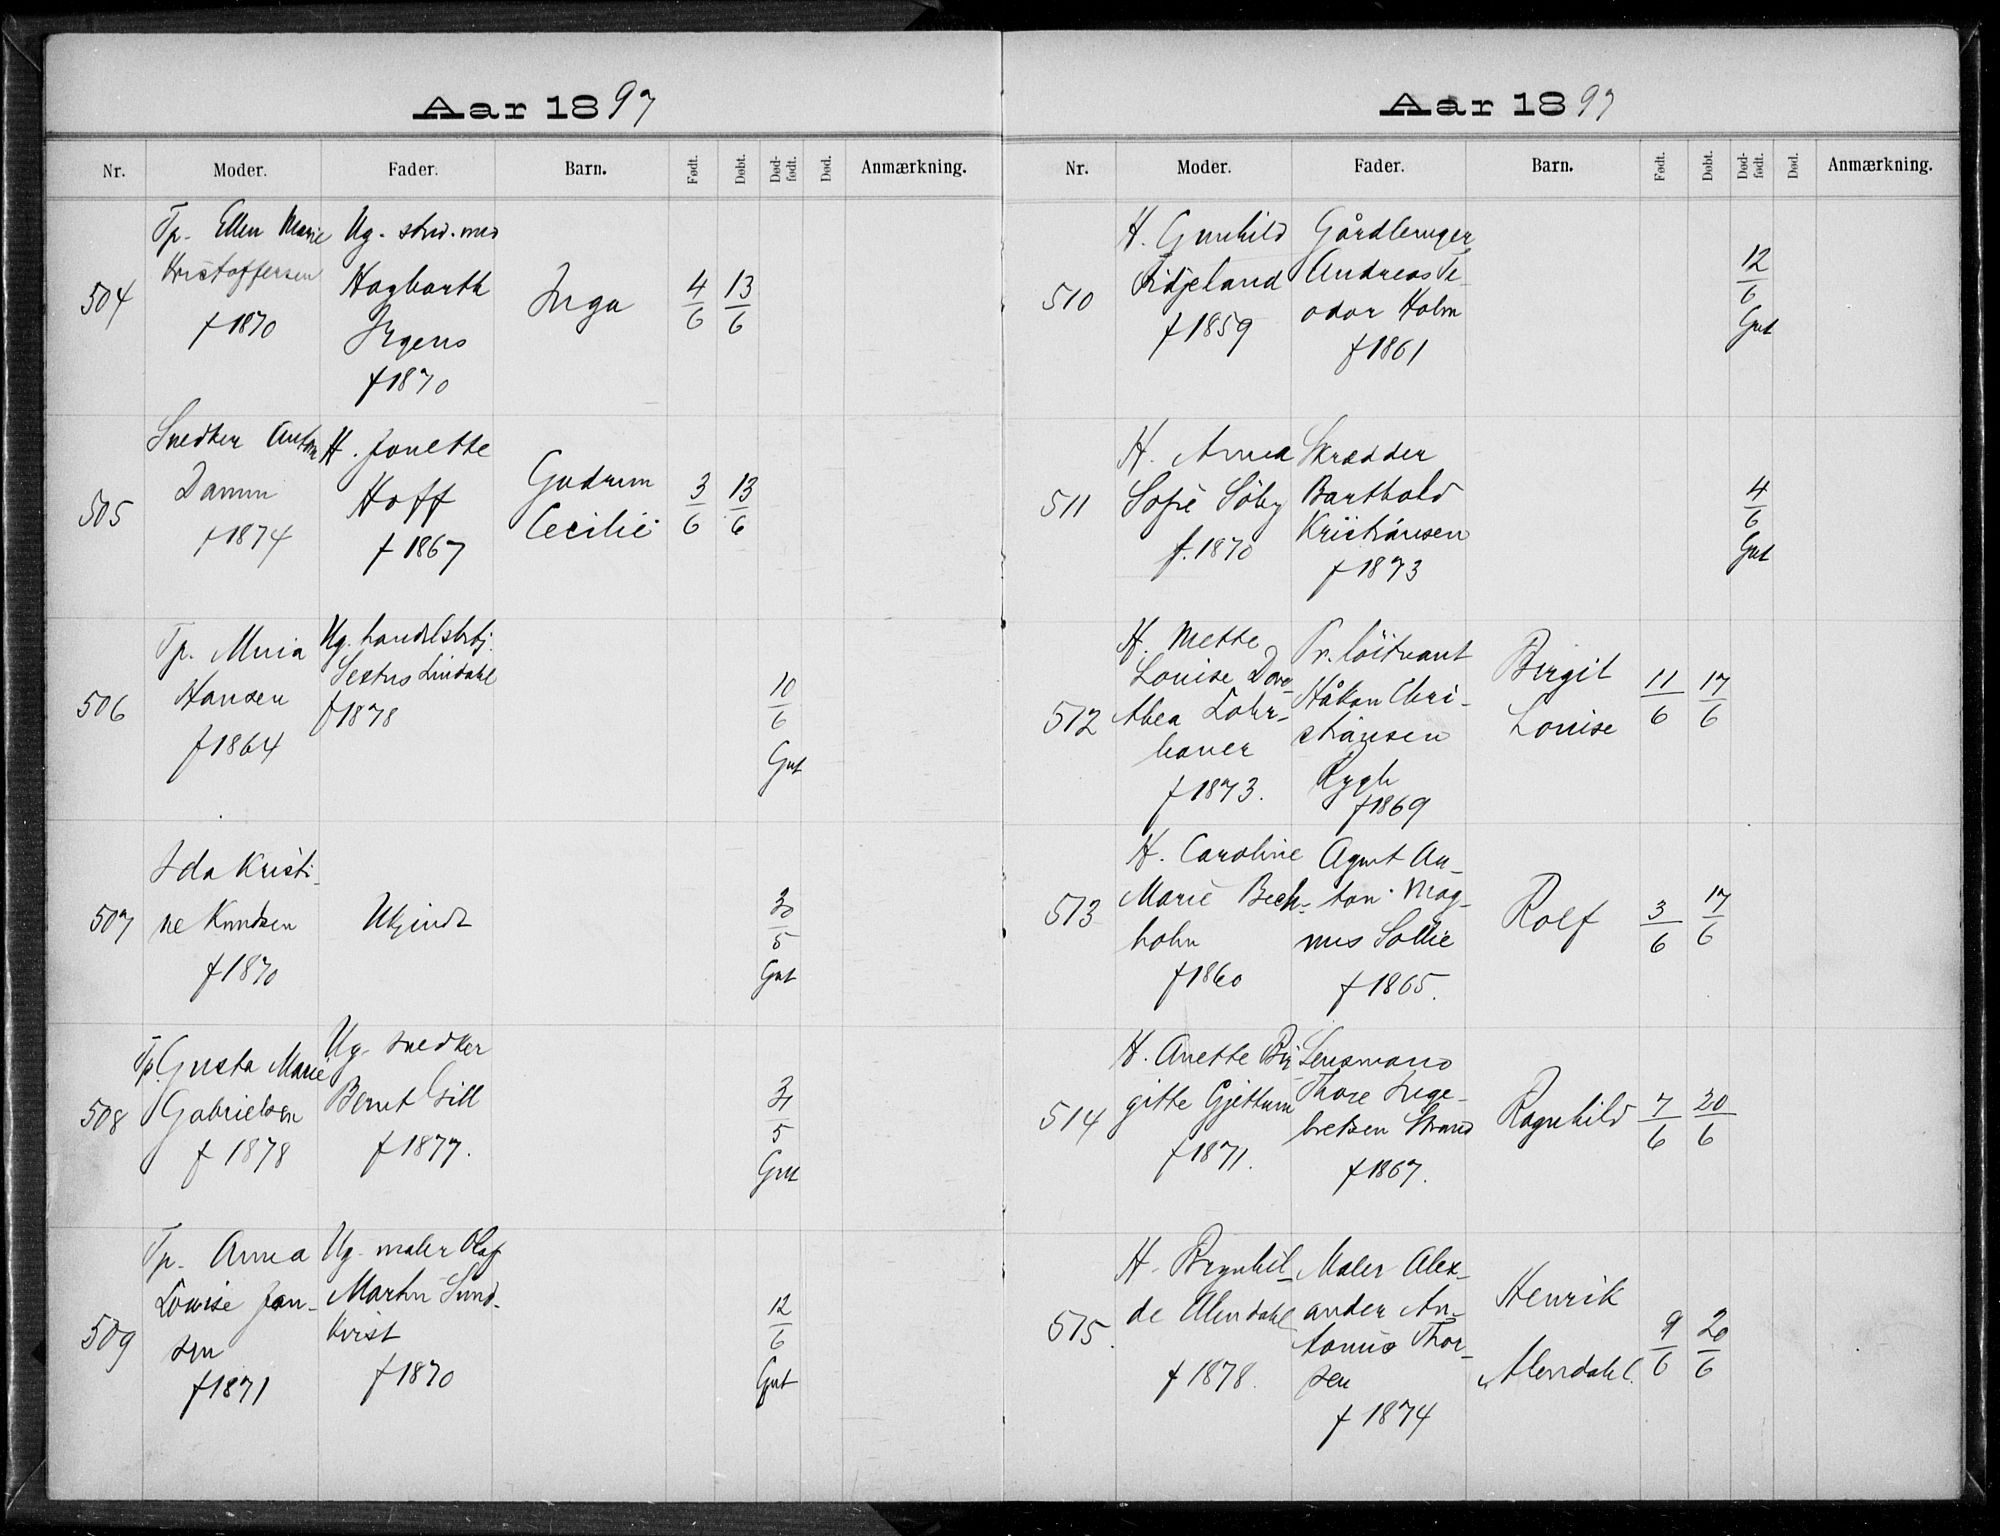 Aar 1897
Nr. Moder. Fader. Barn. Født. Døbt. Død-født. Død. Anmærkning.
504
Tp. Ellen Marie
Kristoffersen
f 1870
Ug. stud. med
Hagbarth
Irgens
f 1870
Inga
4/6 13/6
505
Snedker Anton
Damm
f 1874
H. Jonette
Hoff
f 1867
Gudrun
Cecilie
3/6 13/6
506
Tp. Maria
Hansen
f 1864
Ug. handelsbetj.
Sextus Lindahl
f 1878
10/6
Gut
507
Ida Kristi-
ne Knudsen
f 1870
Ukjendt
30/5
Gut
508
Tp. Gusta Marie
Gabrielsen
f 1878
Ug. snedker
Bernt Sill
f 1877.
31/5
Gut
509
Tp. Anna
Lowise Jan-
sen
f 1871
Ug. maler Olaf
Martin Sund-
kvist
f 1870
12/6
Gut
Aar 1897
Nr. Moder. Fader. Barn. Født. Døbt. Død-født. Død. Anmærkning.
510
H. Gunhild
Fidjeland
f 1859
Gårdbruger
Andreas Te-
odor Holm
f 1861
12/6
Gut
511
H. Anna
Sofie Söby
f. 1870
Skrædder
Barthold
Kristiansen
f 1873
4/6
Gut
512
H. Mette
Louise Doro-
thea Lohr-
bauer
f 1873.
Pr. löitnant
Håkon Chri-
stiansen
Rygh
f 1869
Birgit
Louise
11/6 17/6
513
H. Caroline
Marie Bech-
holm
f 1860
Agent An-
ton Mag-
nus Sollie
f 1865.
Rolf
3/6 17/6
514
H. Anette Bir-
gitte Gjettum
f 1871.
Lensmand
Thore Inge-
bretsen Strand
f 1867.
Ragnhild
7/6 20/6
515.
H. Brynhil-
de Alendahl
f 1878.
Maler Alex-
ander An-
tonius Thor-
sen
f 1874
Henrik
Alendahl.
9/6 20/6